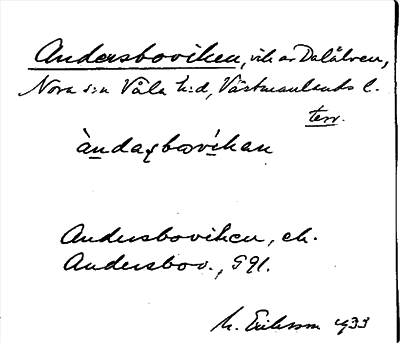 Andersboviken, vik av Dalälven,
Nora s:n Våla h:d, Västmanlands l.
terr.
àndaʂbovíkan
Andersboviken, ek.
Andersbov., G 91.
M. Eriksson 1933